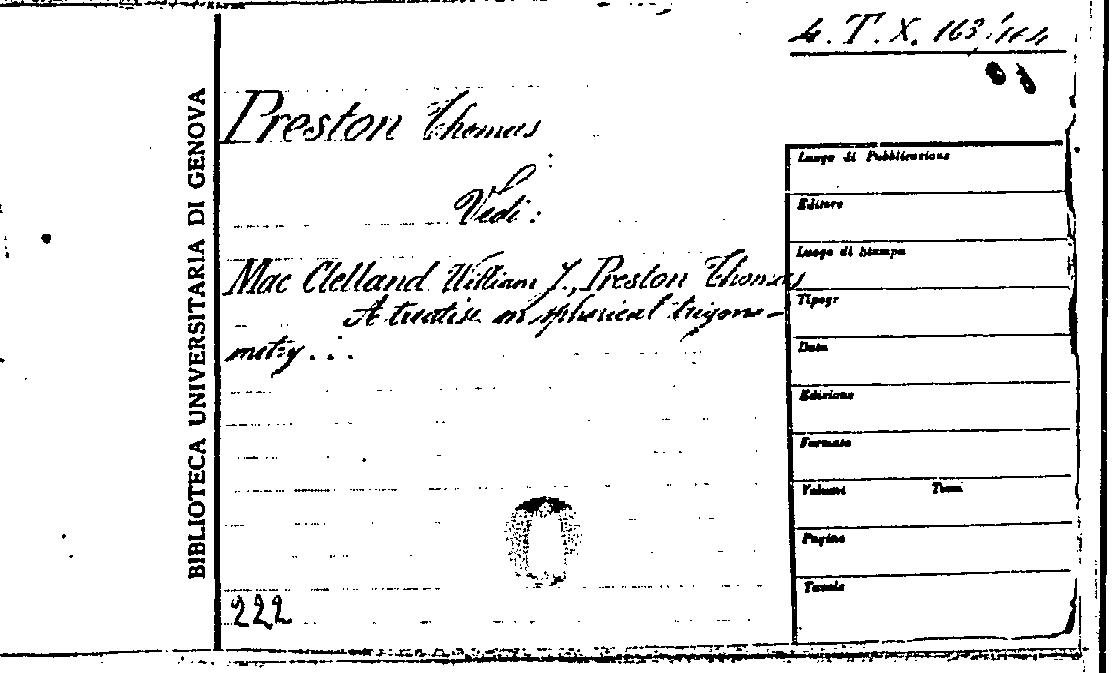 4. T. X. 163/164
BIBLIOTECA UNIVERSITARIA DI GENOVA
Preston Thomas
Vedi:
Mac Clelland William J., Preston Thomas
A treatise on spherical trigono-
metry...
222
Luogo di Pubblicazione
Editore
Luogo di Stampa
Tipogr
Data
Edizione
Formato
Volumi Tomi
Pagine
Tavole